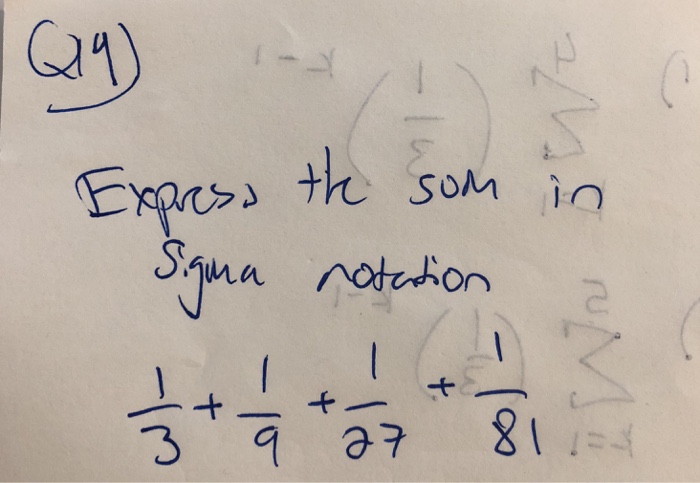 Q19)
Express the sum in
Sigma notation
1/3 + 1/9 + 1/27 + 1/81